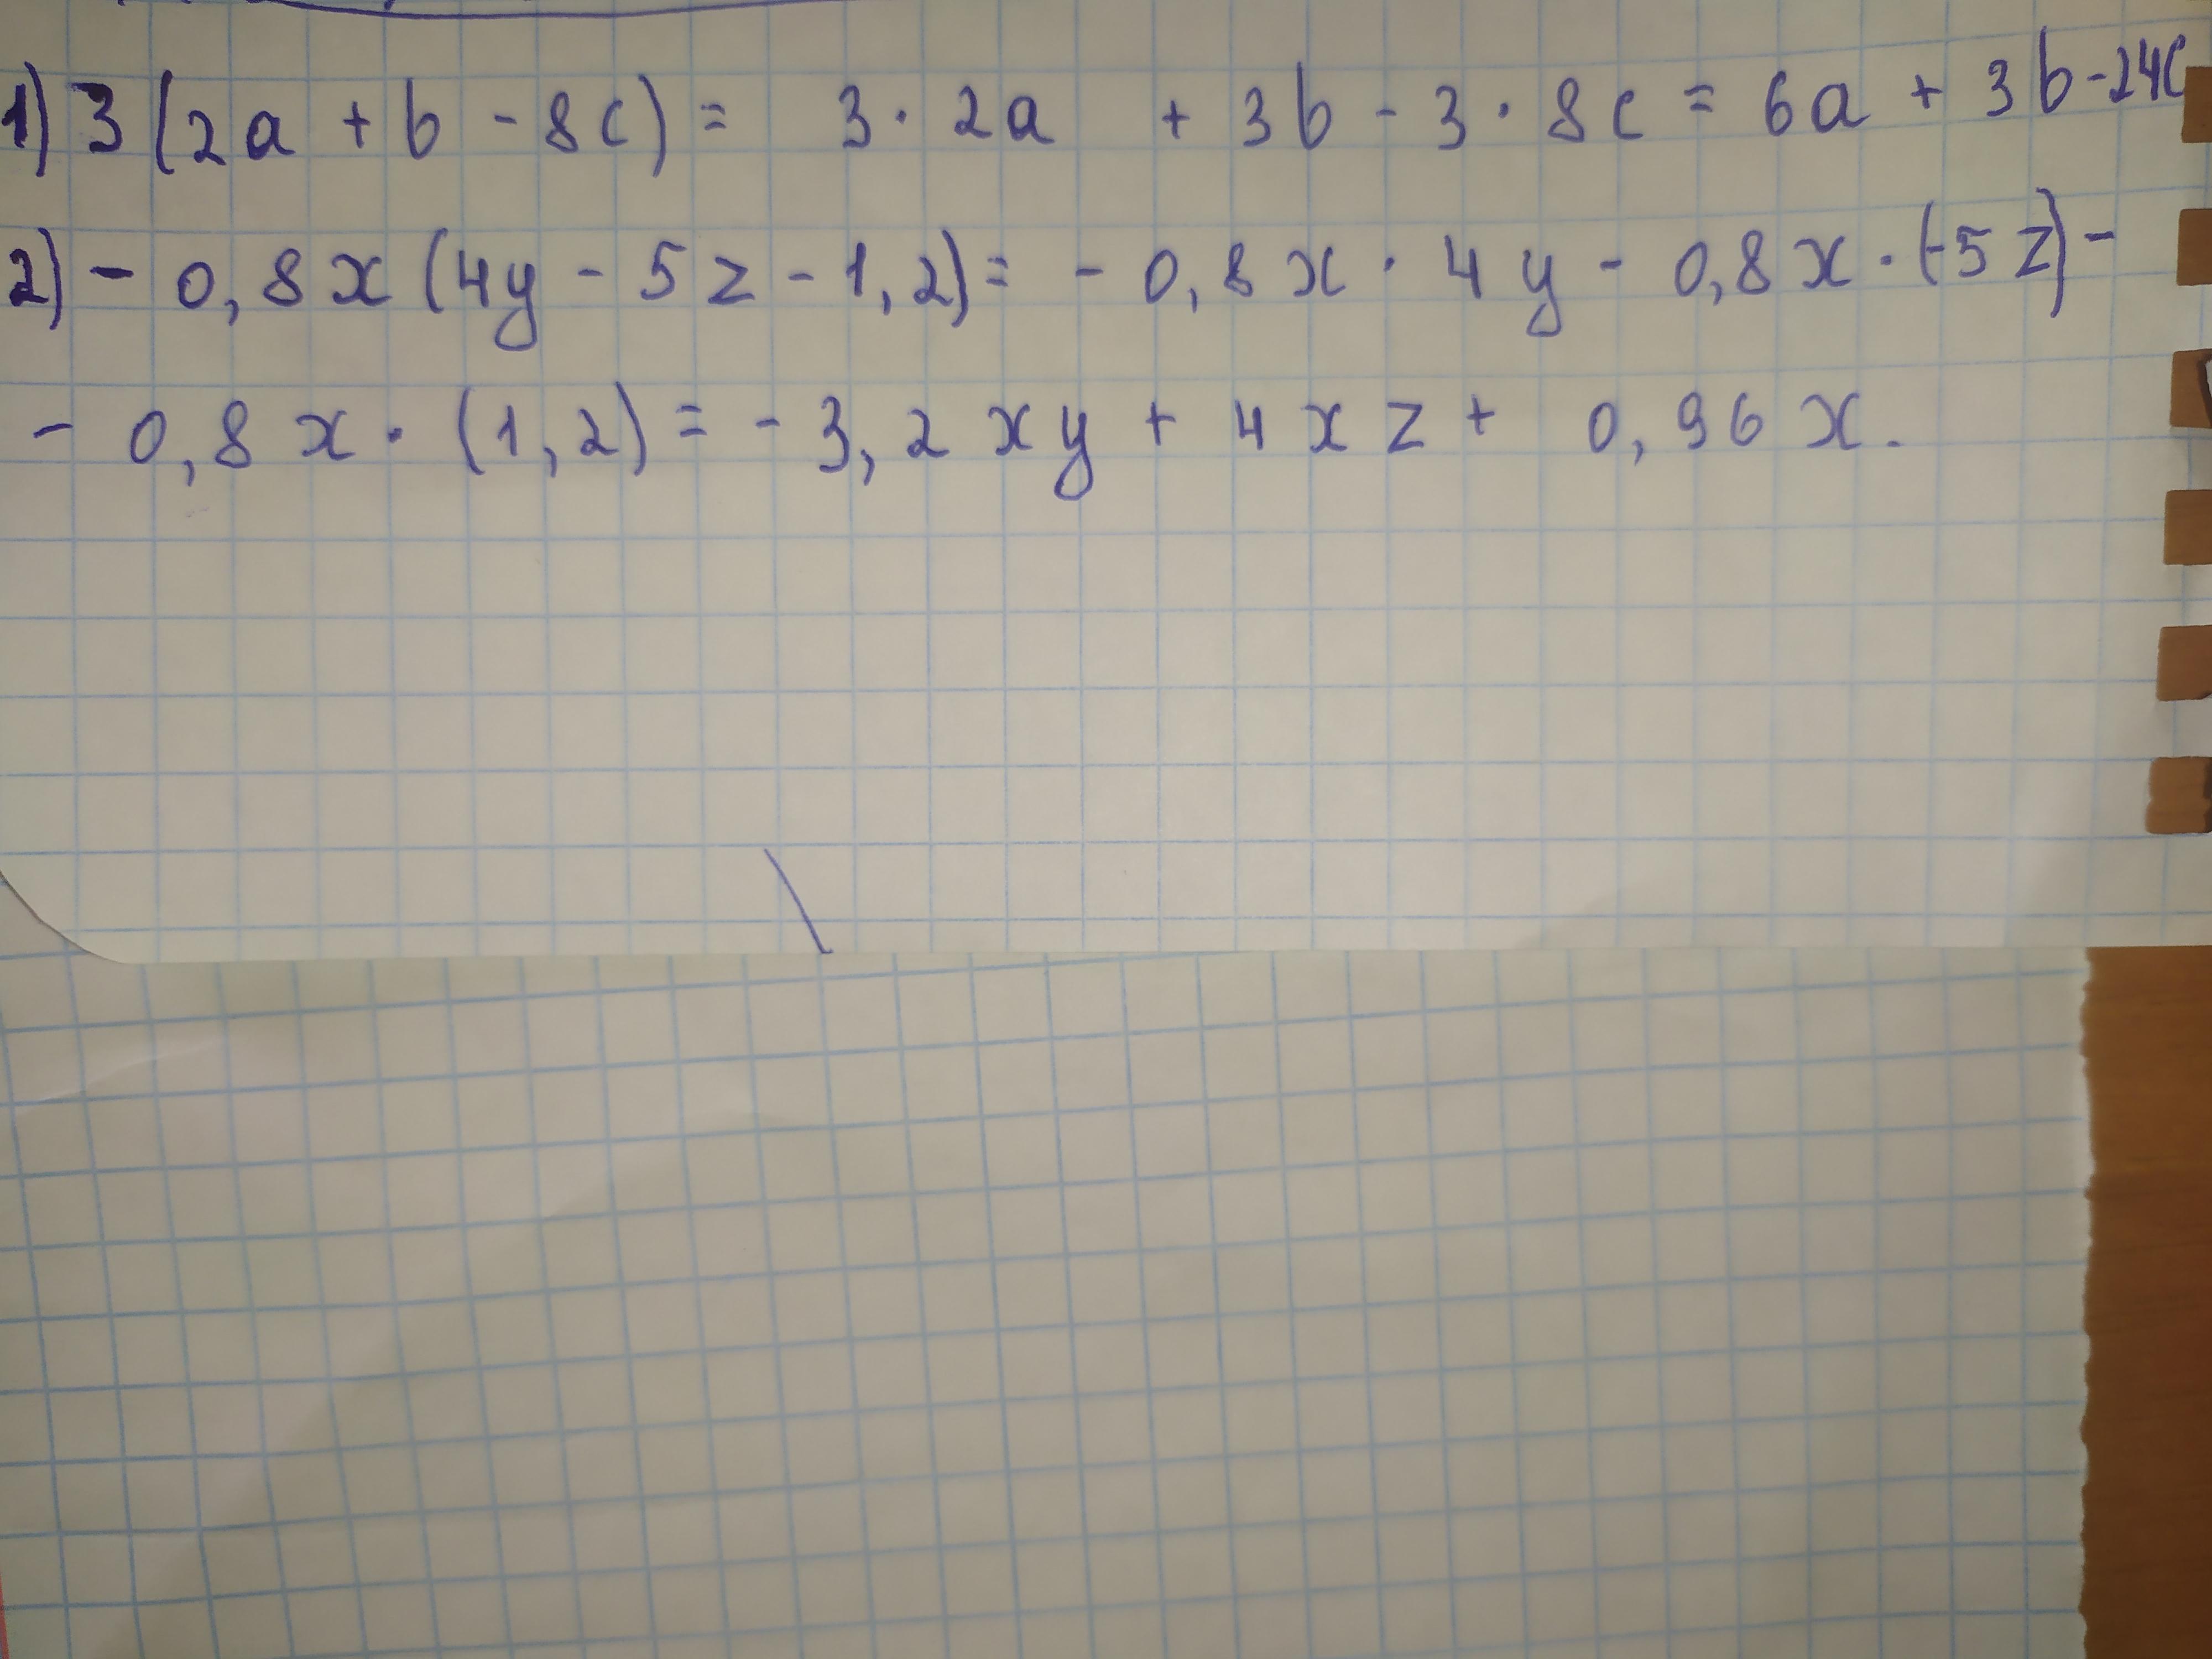 1) 3 (2a + b - 8c) = 3 · 2a + 3b - 3 · 8c = 6a + 3b - 24c
2) - 0,8x (4y - 5z - 1,2) = - 0,8x · 4y - 0,8x · (-5z) -
- 0,8x · (1,2) = - 3,2xy + 4xz + 0,96x.